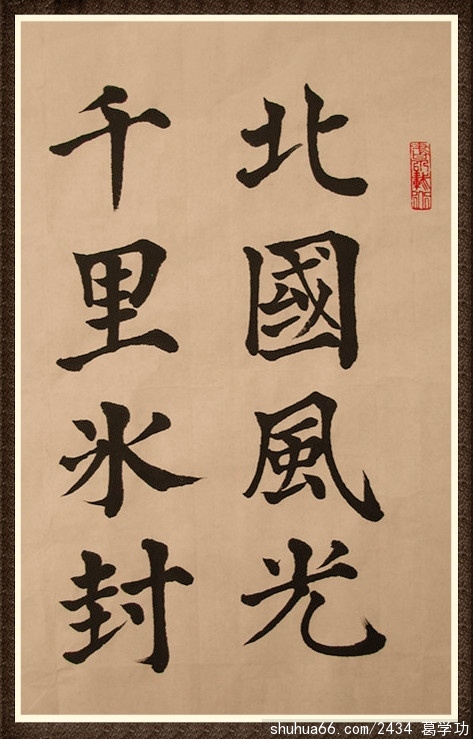 北國風光
千里氷封
shuhua66.com/2434 葛学功